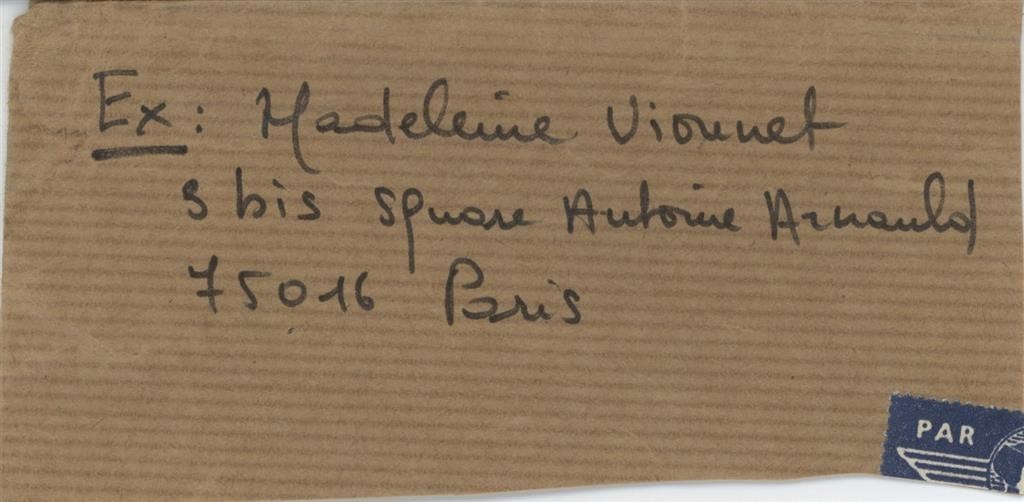 Ex: Madeleine Vionnet
3 bis square Antoine Arnauld
75016 Paris
PAR